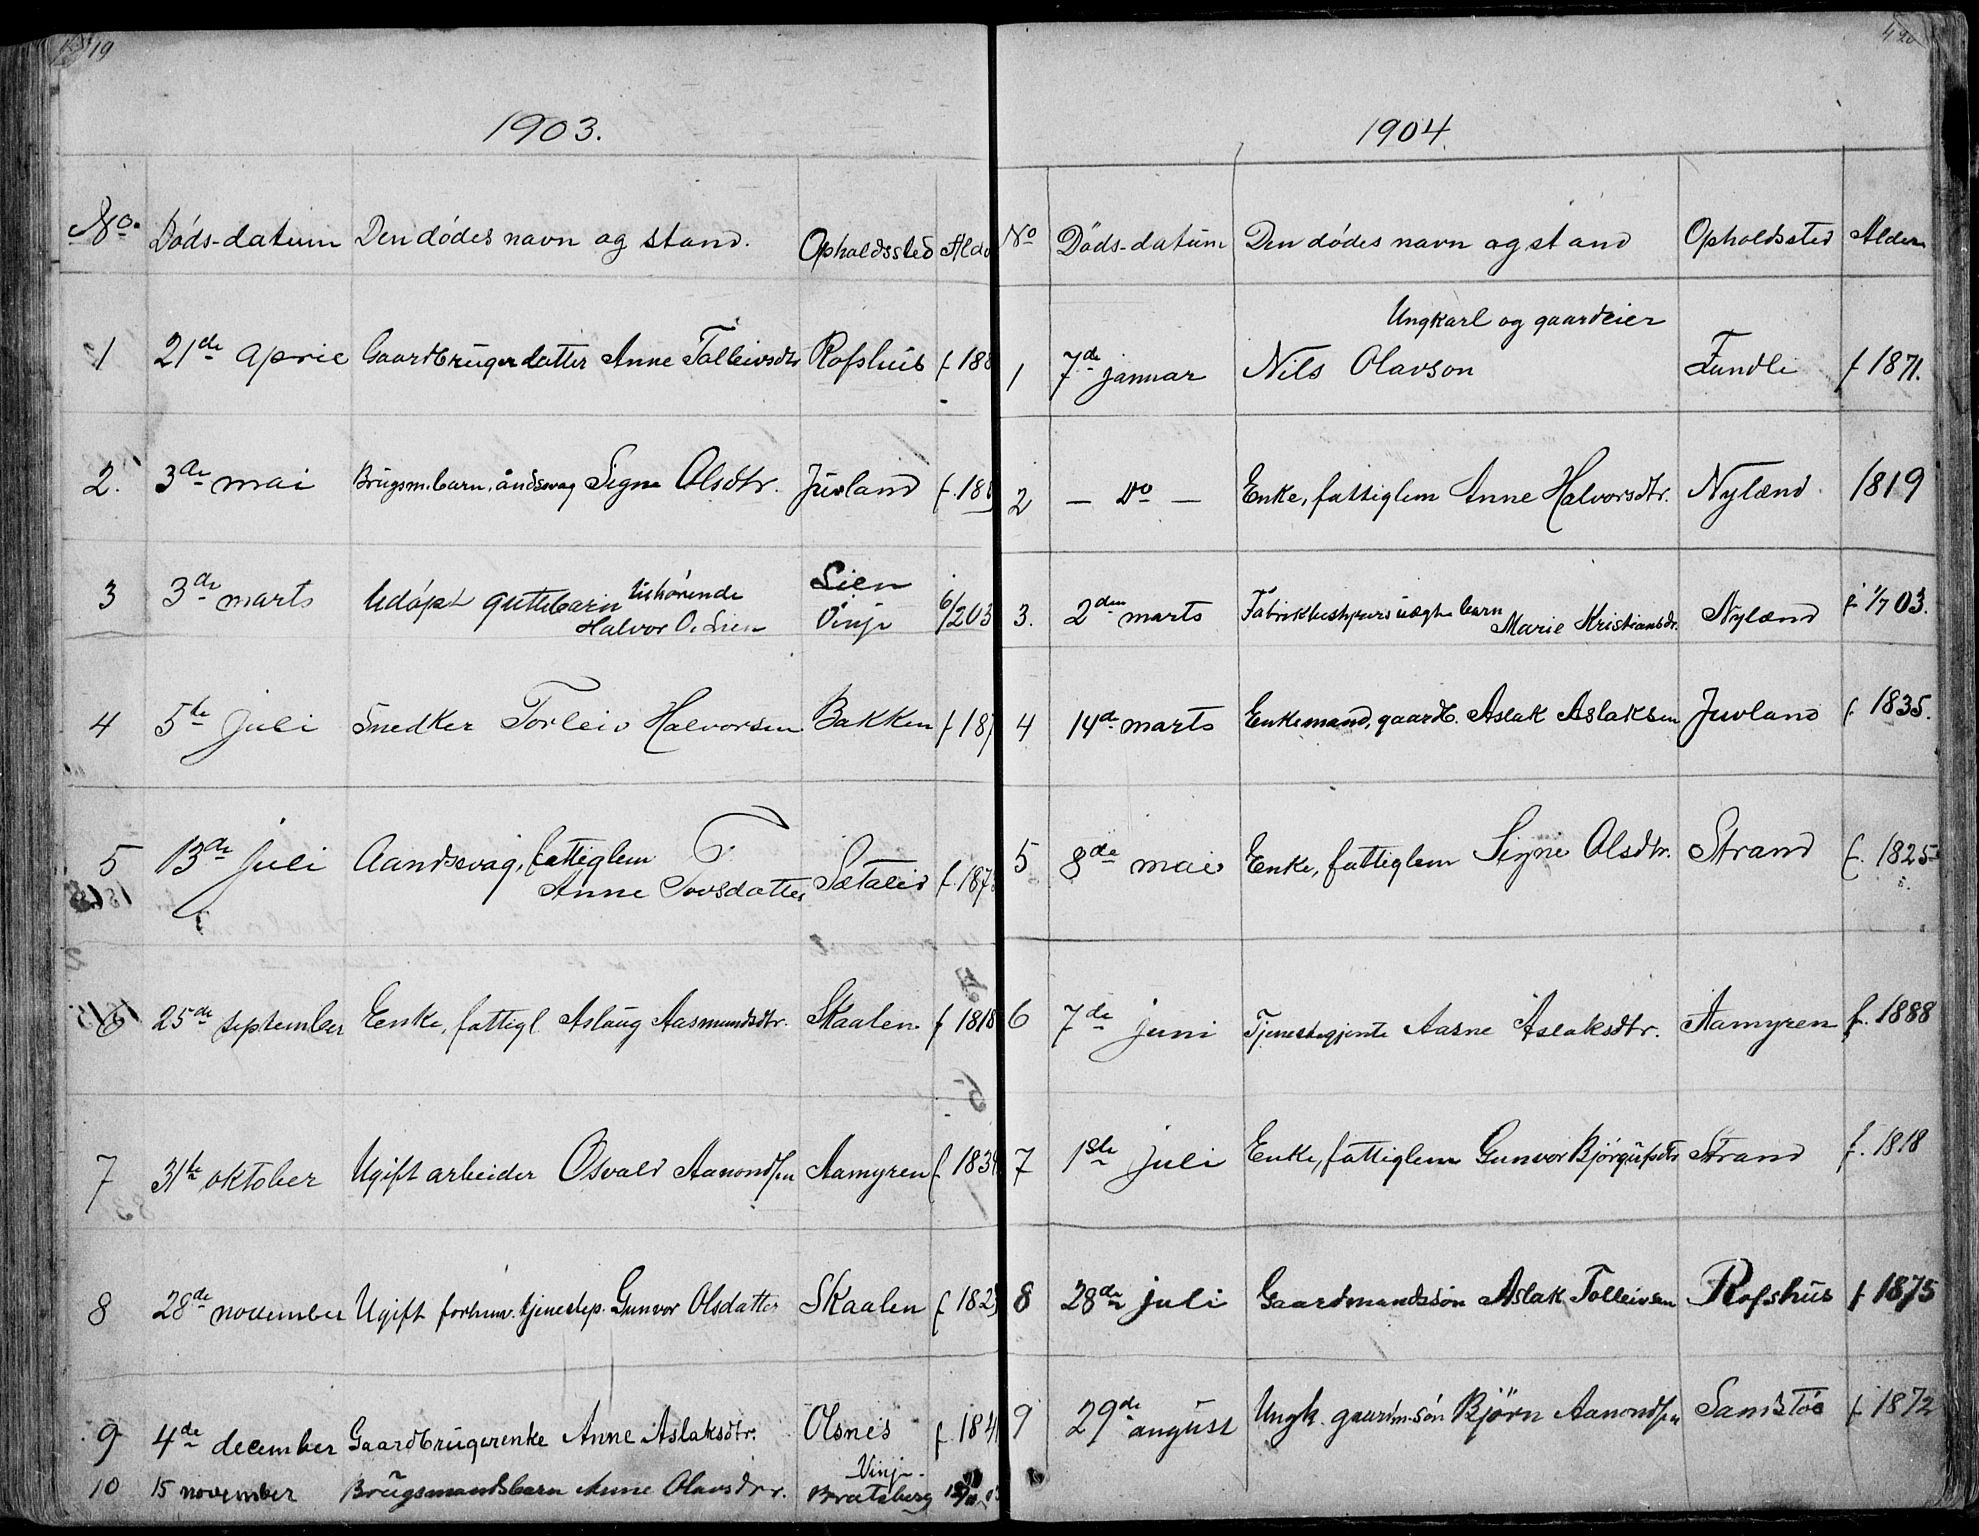 19
1903.
No. Döds-datum Den dödes navn og stand. Opholdssted Alde
1 21de april Gaardbrugerdatter Anne Tolleivsdtr Rofshus f. 188
2. 3de mai Brugsm.barn, åndssvag Signe Olsdtr. Juvland f. 18
3 3de marts Udöpt guttebarn tilhörende Halvor O. Lien Lien Vinje 6/2 03
4 5te juli Snedker Torleiv Halvorsen Bakken f. 187
5 13de juli Aandssvag, fattiglem Anne Tovsdatter Sætaleid f. 187
6 25de september Enke, fattigl. Aslaug Aasmundsdtr. Skaalen f 1818
7 31te oktober Ugift arbeider Osvald Aanondsen Aamyren f. 183
8 28de november Ugift forhenv. tjenestep. Gunvor Olsdatter Skaalen f. 182
9 4de december Gaardbrugerenke Anne Aslaksdtr. Olsnes f. 184
10 15 november Brugsmandsbarn Anne Olavsdtr. Vinje Bratsberg
420
1904.
No Döds-datum Den dödes navn og stand Opholdssted Alder
1 7de januar Ungkarl og gaardeier Nils Olavson Lundli f 1871.
2 — Do — Enke, fattiglem Anne Halvorsdtr. Nylænd 1819
3. 2den marts Fabrikbestyrers uægte barn Marie Kristiansdr. Nylænd f. 1/7 03.
4 14de marts Enkemand, gaardb. Aslak Aslaksen Juvland f. 1835.
5 8de mai Enke, fattiglem Signe Olsdtr. Strand f. 1825
6 7de juni Tjenestegjente Aasne Aslaksdtr. Aamyren f. 1888
7 1ste juli Enke, fattiglem Gunvor Björgufsdtr Strand f. 1818
8 28de juli Gaardmandssön Aslak Tolleivsen Rofshus f 1875
9 29de august Ungk. gaardm.sön Björn Aanondsen Sandstöe f. 1872